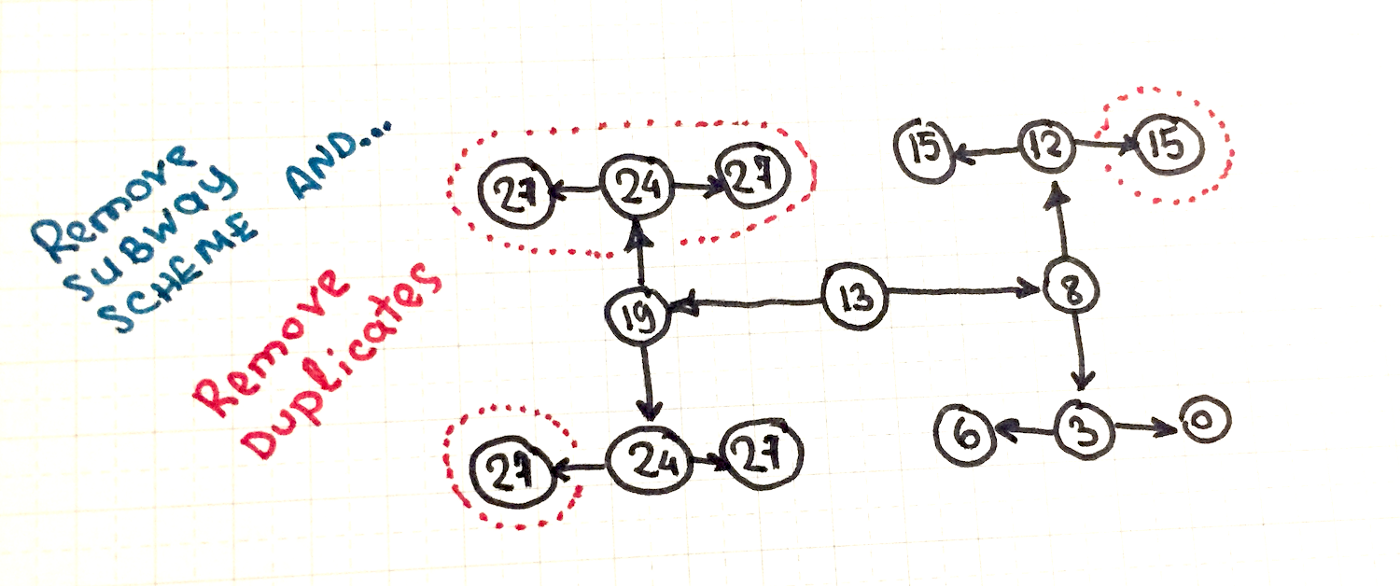 Remove
SUBWAY
SCHEME AND...
Remove
Duplicates
27 24 27
15 12 15
19 13 8
27 24 27
6 3 0